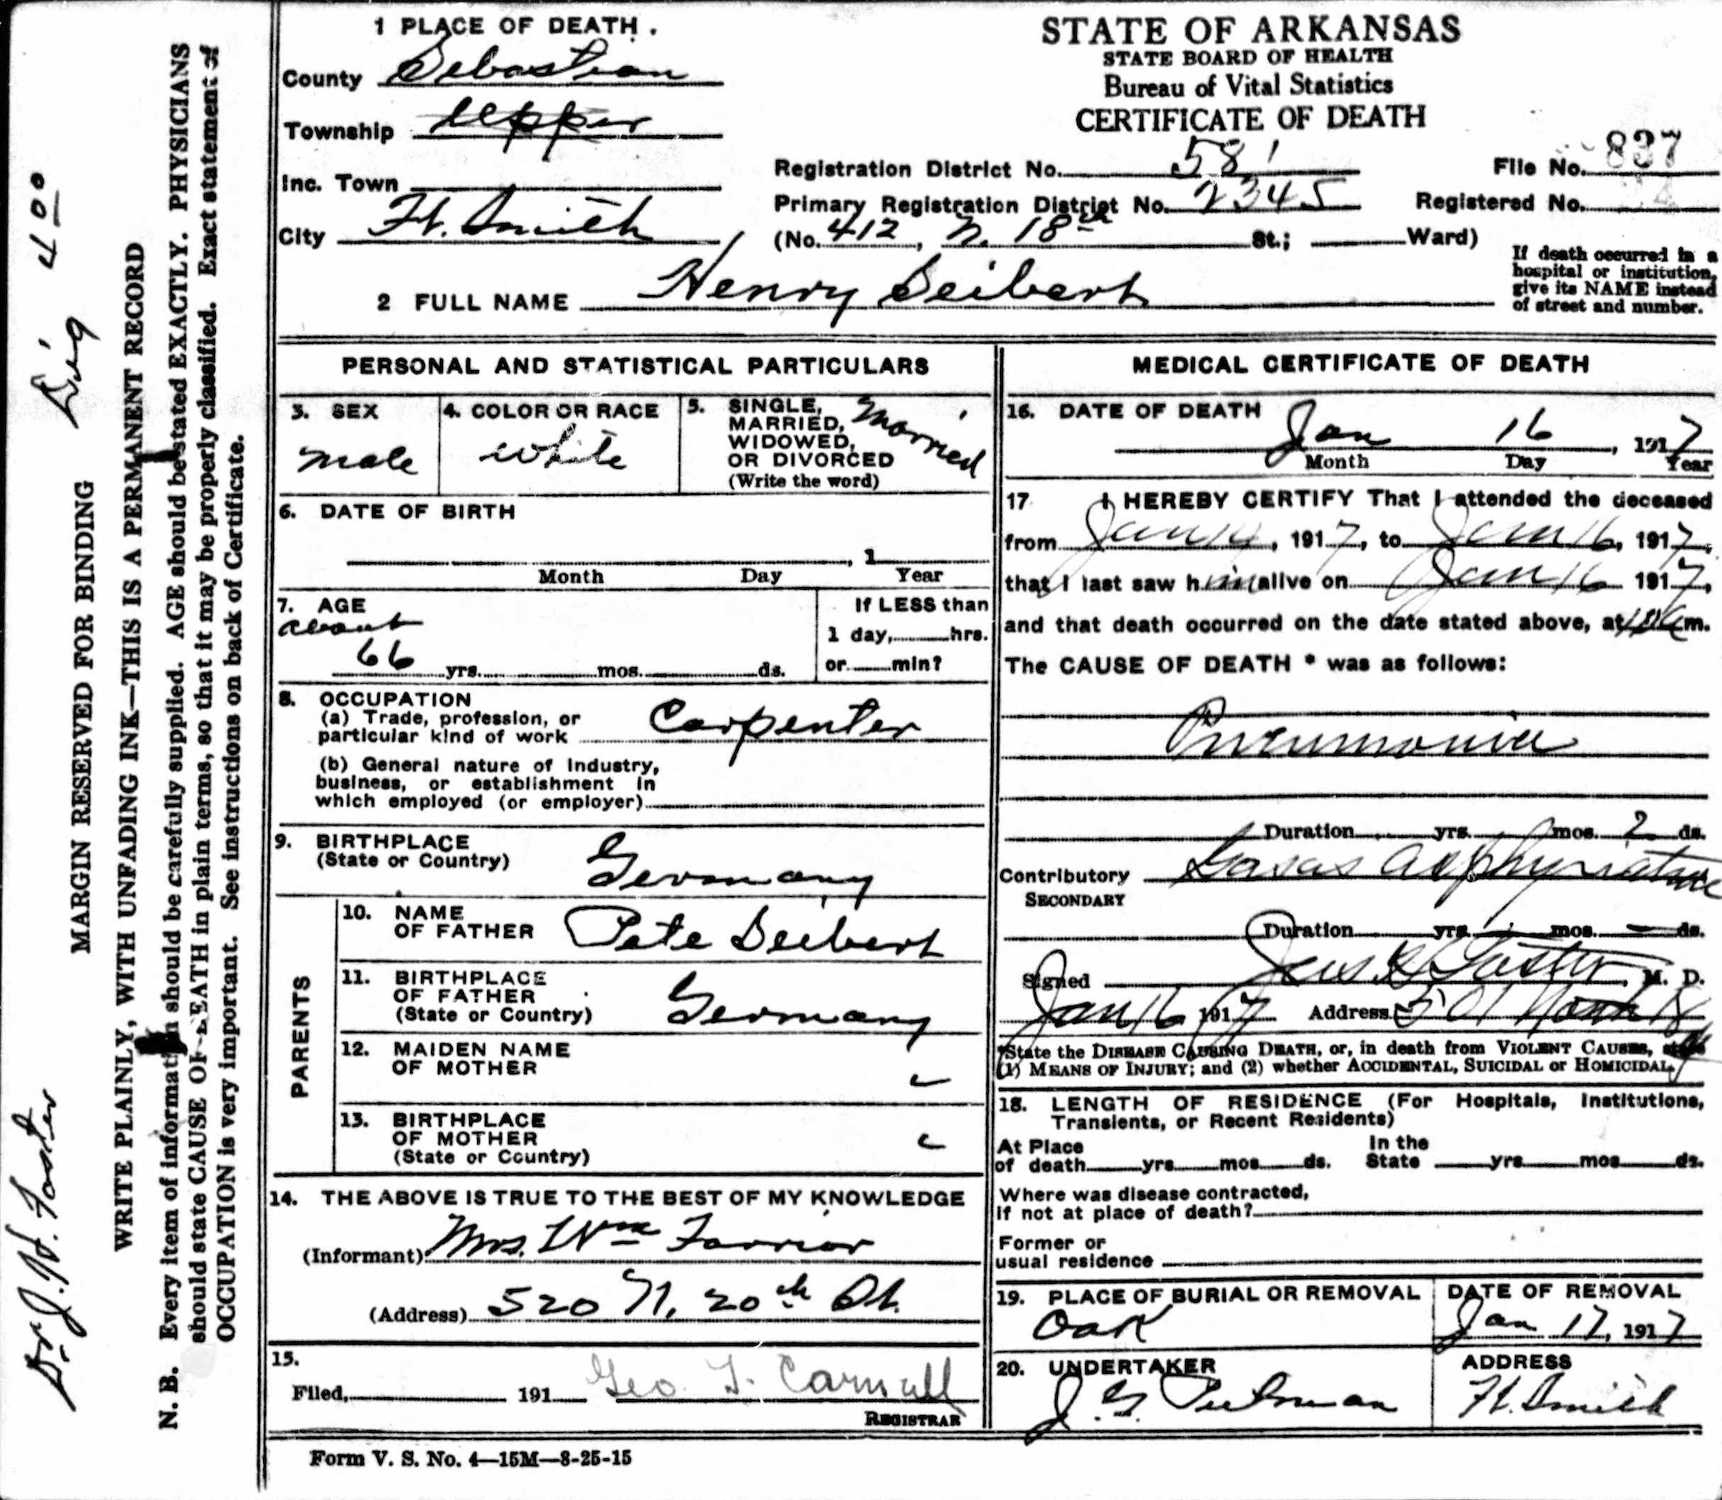 1 PLACE OF DEATH.
County Sebastian
Township Upper
Inc. Town
City Ft. Smith
STATE OF ARKANSAS
STATE BOARD OF HEALTH
Bureau of Vital Statistics
CERTIFICATE OF DEATH
Registration District No. 581
File No. 837
Primary Registration District No. 2345
Registered No.
(No. 412, N. 18th St.; Ward)
If death occurred in a
hospital or institution,
give its NAME instead
of street and number.
2 FULL NAME Henry Seibert
PERSONAL AND STATISTICAL PARTICULARS
3. SEX
male
4. COLOR OR RACE
white
5. SINGLE,
MARRIED,
WIDOWED,
OR DIVORCED
(Write the word)
Married
6. DATE OF BIRTH
, 1
Month Day Year
7. AGE
about
66 yrs. mos. ds.
If LESS than
1 day, hrs.
or min?
8. OCCUPATION
(a) Trade, profession, or
particular kind of work Carpenter
(b) General nature of industry,
business, or establishment in
which employed (or employer)
9. BIRTHPLACE
(State or Country) Germany
PARENTS
10. NAME
OF FATHER Pete Seibert
11. BIRTHPLACE
OF FATHER
(State or Country) Germany
12. MAIDEN NAME
OF MOTHER
13. BIRTHPLACE
OF MOTHER
(State or Country)
14. THE ABOVE IS TRUE TO THE BEST OF MY KNOWLEDGE
(Informant) Mrs. Wm Farrior
(Address) 520 N. 20th St.
15.
Filed, 191 Geo. F.
REGISTRAR
Form V. S. No. 4—15M—8-25-15
MEDICAL CERTIFICATE OF DEATH
16. DATE OF DEATH
Jan 16, 1917
Month Day Year
17 I HEREBY CERTIFY That I attended the deceased
from Jan 14, 1917, to Jan 16, 1917,
that I last saw him alive on Jan 16 1917,
and that death occurred on the date stated above, at m.
The CAUSE OF DEATH * was as follows:
Pneumonia
Duration yrs. mos. 2 ds.
Contributory
SECONDARY
Duration yrs. mos. ds.
Signed Foster, M. D.
Jan 16 1917 Address 501 North 18
*State the DISEASE CAUSING DEATH, or, in death from VIOLENT CAUSES, state
(1) MEANS OF INJURY; and (2) whether ACCIDENTAL, SUICIDAL or HOMICIDAL.
18. LENGTH OF RESIDENCE (For Hospitals, Institutions,
Transients, or Recent Residents)
At Place
of death yrs. mos. ds.
In the
State yrs. mos. ds.
Where was disease contracted,
if not at place of death?
Former or
usual residence
19. PLACE OF BURIAL OR REMOVAL
Oak
DATE OF REMOVAL
Jan 17, 1917
20. UNDERTAKER
J. G. Putman
ADDRESS
Ft. Smith
Dr J. H. Foster
400
MARGIN RESERVED FOR BINDING
WRITE PLAINLY, WITH UNFADING INK—THIS IS A PERMANENT RECORD
N. B. Every item of information should be carefully supplied. AGE should be stated EXACTLY. PHYSICIANS
should state CAUSE OF DEATH in plain terms, so that it may be properly classified. Exact statement of
OCCUPATION is very important. See instructions on back of Certificate.